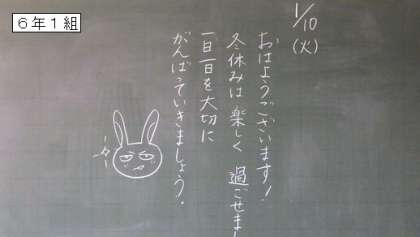 6年1組
1/10
(火)
おはようございます!
冬休みは楽しく過ごせま
一日一日を大切に
がんばっていきましょう。